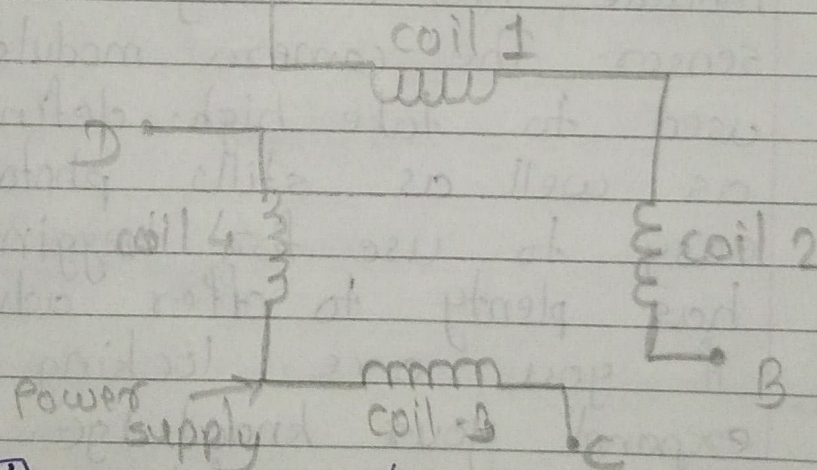 coil 1
D
coil 4
coil 2
B
Power
supply
coil 3
C